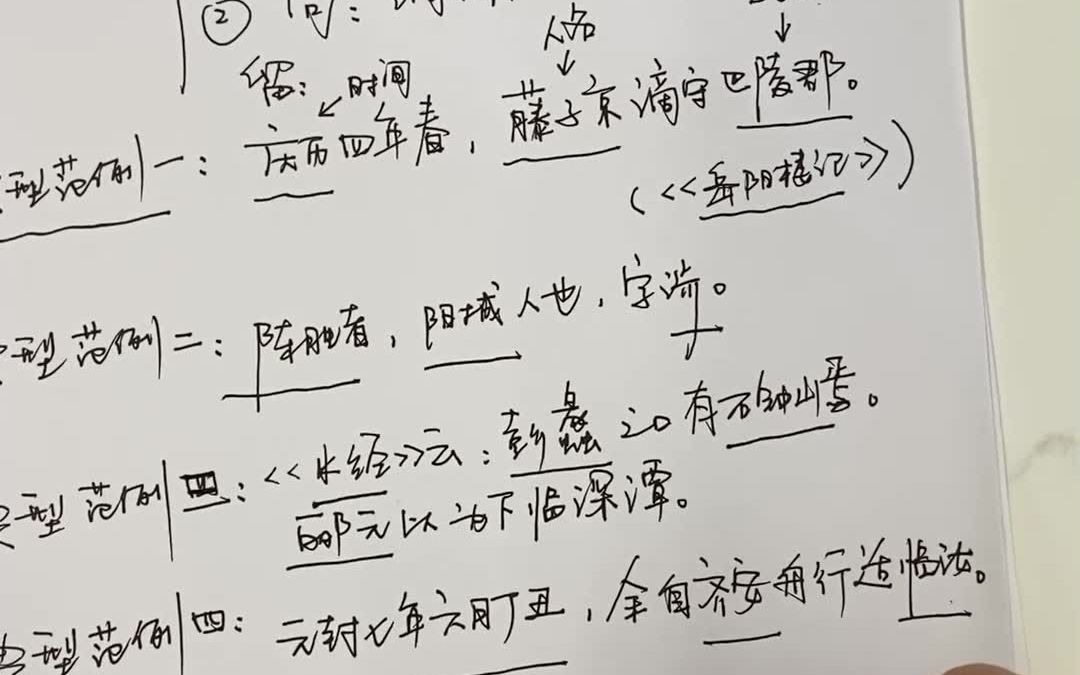 ② 句:
人名
留: 时间
型范例一: 庆历四年春,藤子京滴守巴陵郡。
(<<岳阳楼记>>)
型范例二: 陈胜者,阳城人也,字涉。
型范例四: <<水经>>云:彭蠡之口有石钟山焉。
郦元以为下临深潭。
典型范例四: 元封七年六月丁丑,余自齐安舟行适临汝。